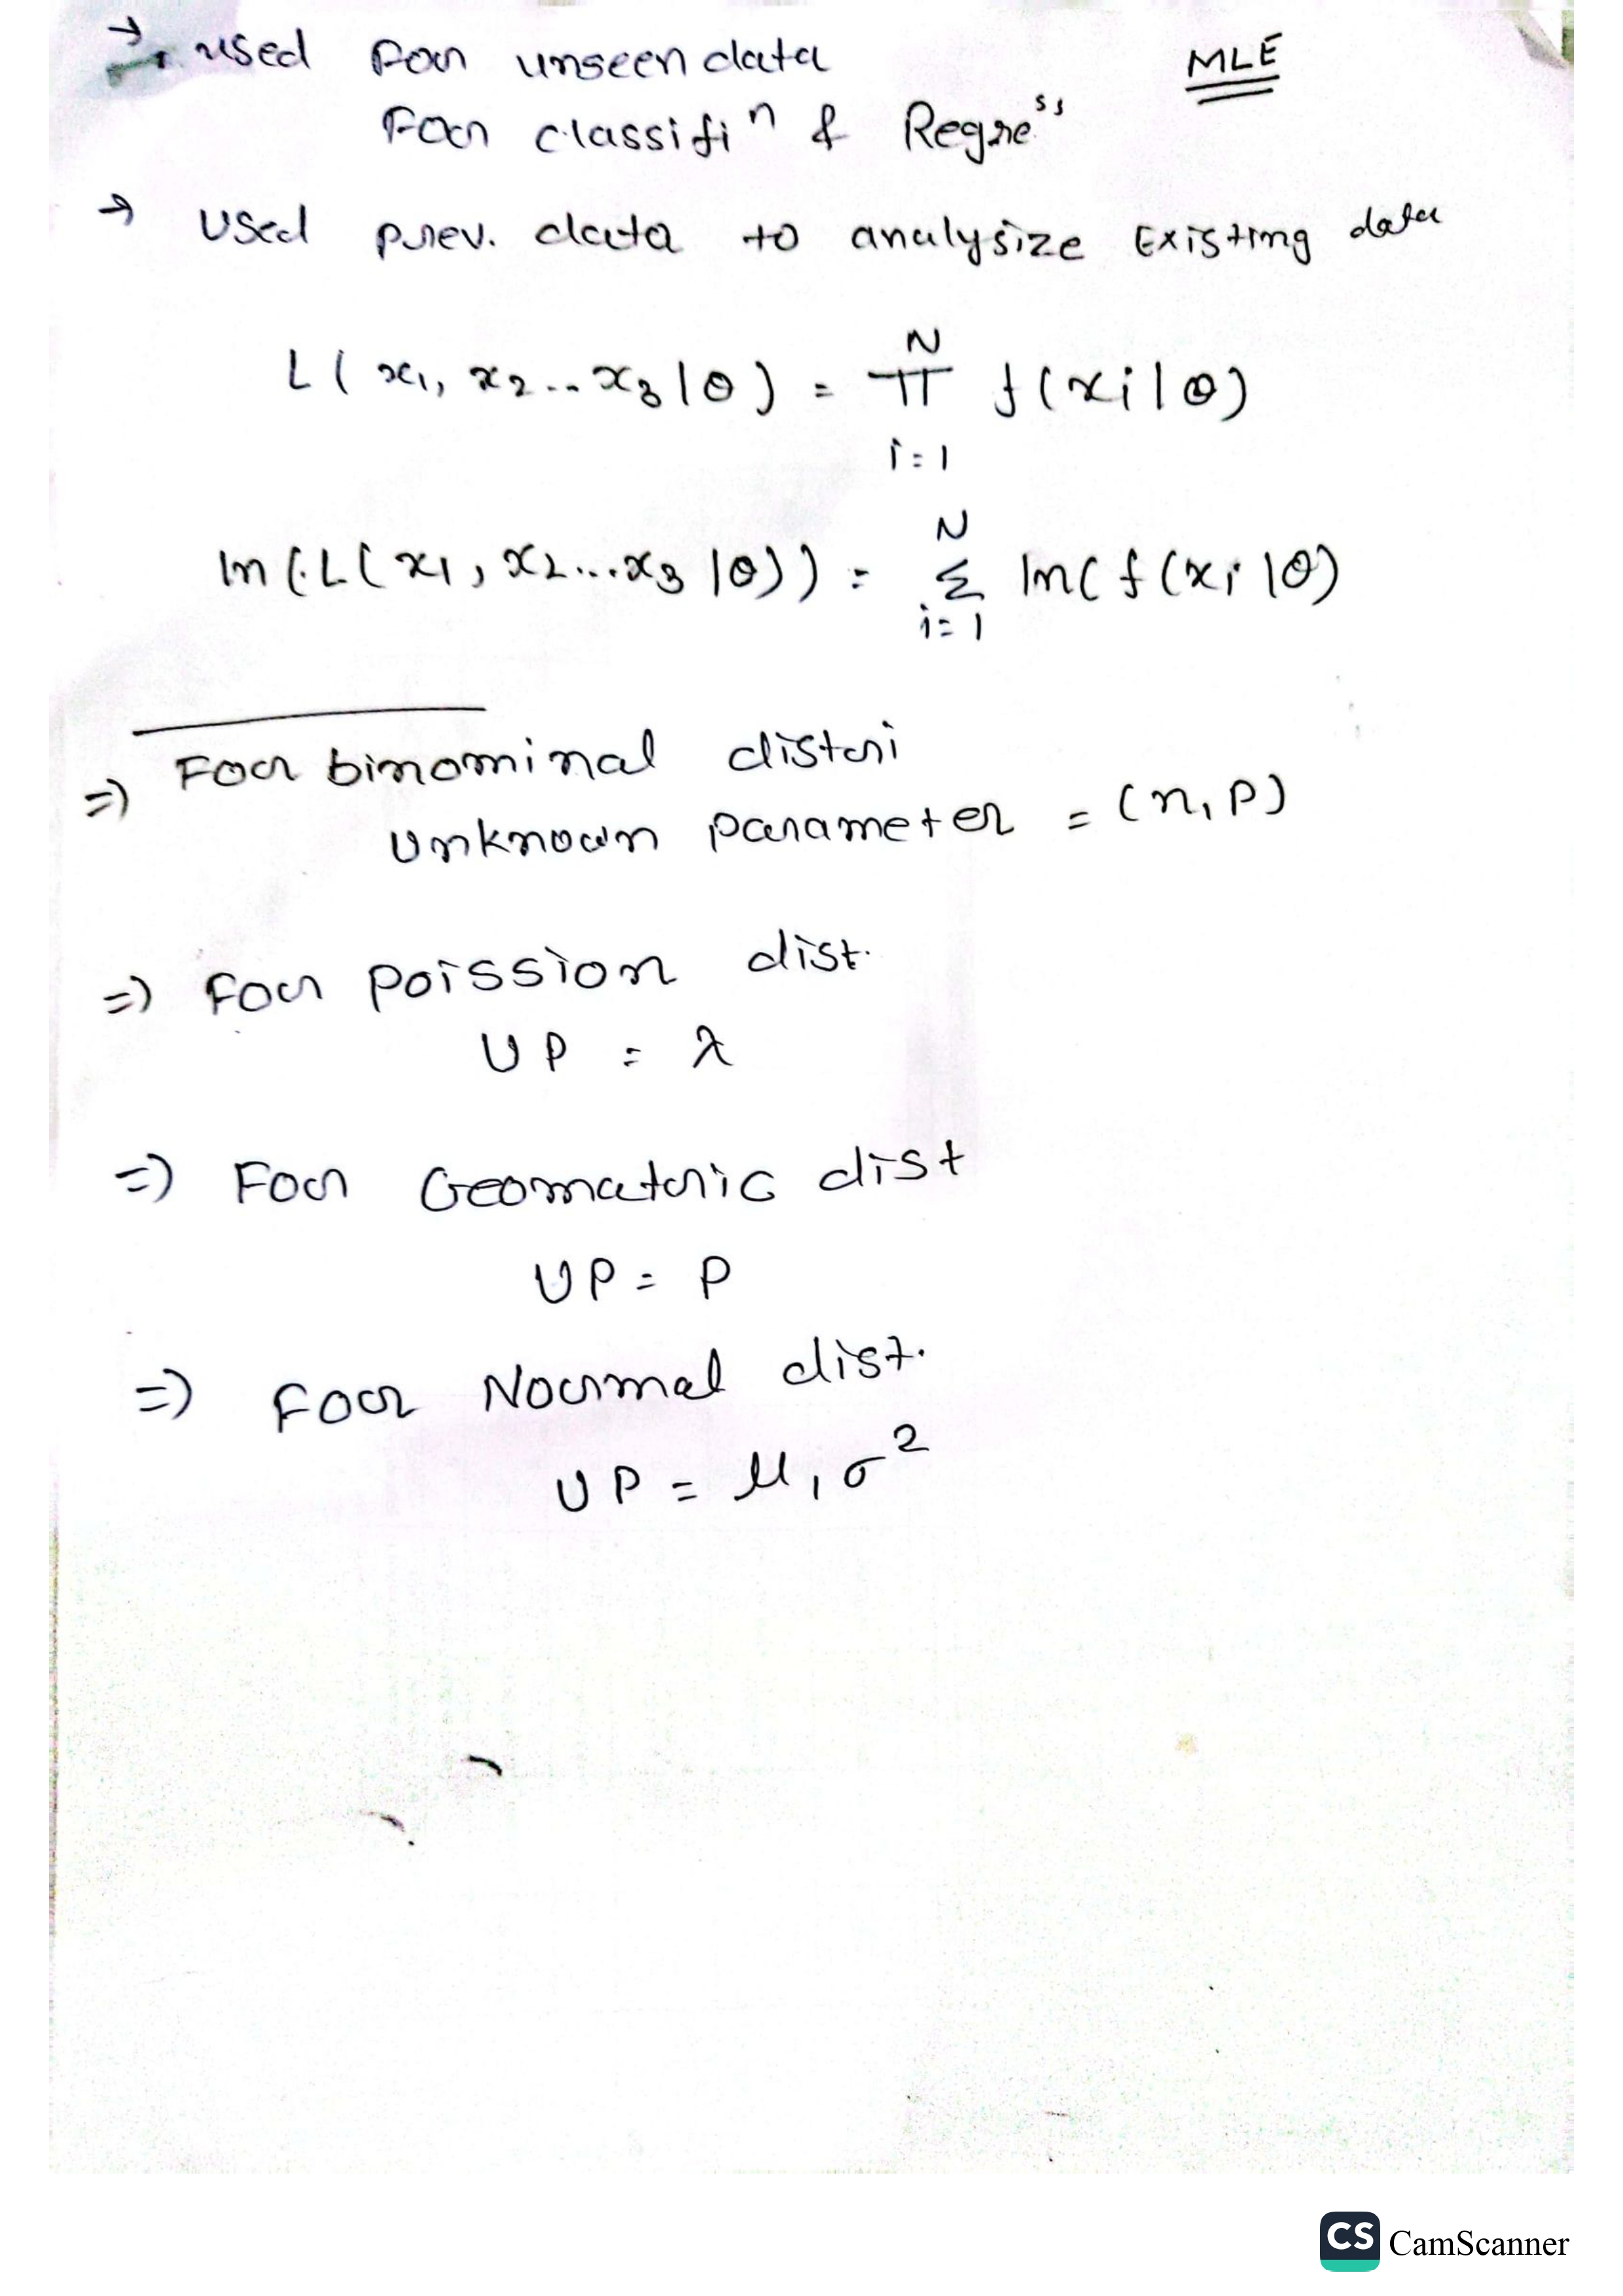 → used for unseen data
MLE
For classifiⁿ & Regreˢˢ
→ Used prev. data to analysize Existing data
L( x₁, x₂...x₃ | θ ) = N Π i=1 f(xi | θ)
ln(L( x₁, x₂...x₃ | θ)) = N Σ i=1 ln( f (xi | θ)
⇒ For binominal distri
Unknown parameter = (n, p)
⇒ For poission dist.
UP = λ
⇒ For Geomatric dist
UP = P
⇒ For Normal dist.
UP = μ, σ²
CS CamScanner